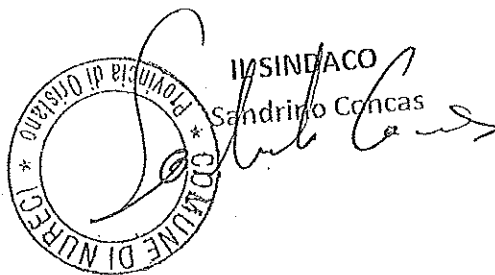 IL SINDACO
Sandrino Concas
* COMUNE DI NURECI *
Provincia di Oristano